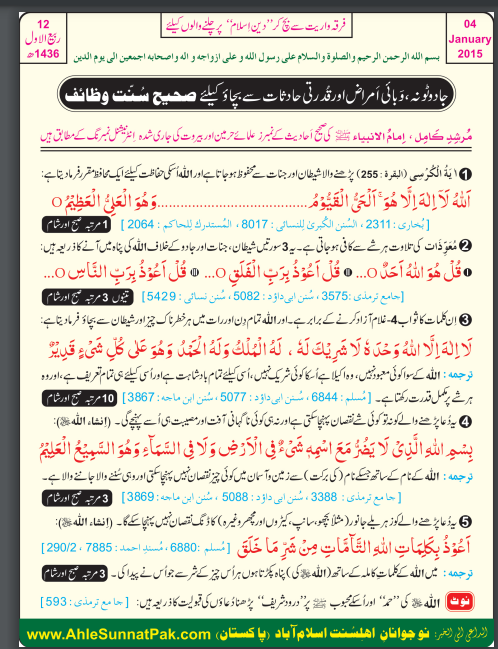 12
ربیع الاول
1436ھ
فرقہ واریت سے بچ کر ’’دین اِسلام‘‘ پر چلنے والوں کیلئے
04
January
2015
بسم الله الرحمن الرحیم والصلوة والسلام علی رسول الله و علی ازواجه و اله واصحابه اجمعین الی یوم الدین
جادو ٹونہ، وَبائی اَمراض اور قُدرتی حادثات سے بچاؤ کیلئے صحیح سُنّت وظائف
مُرشِدِ کَامِل ، اِمامُ الانبیاء ﷺ کی صحیح اَحادیث کے نمبرز عُلمائے حرمین اور بیروت کی جاری شدہ اِنٹرنیشنل نمبرنگ کے مطابق ہیں
1 اٰیَةُ الْکُرْسِی (البقرة : 255) پڑھنے والا شیطان اور جنات سے محفوظ ہو جاتا ہے اور الله اُسکی حفاظت کیلئے ایک محافظ مقرر فرما دیتا ہے:
اَللّٰهُ لَآ اِلٰهَ اِلَّا هُوَ ۚ اَلْحَیُّ الْقَیُّوْمُ......................................وَهُوَ الْعَلِیُّ الْعَظِیْمُ O
[ بُخاری : 2311 ، السُنن الکُبریٰ لِلنسائی : 8017 ، المُستدرک لِلحاکم : 2064 ] 1 مرتبہ صبح اور شام
2 مُعَوِّذَات کی تلاوت ہر شے سے کافی ہو جاتی ہے۔ یہ 3 سورتیں شیطان، جنات اور جادو کے خلاف الله کی پناہ میں آنے کا ذریعہ ہیں:
I قُلْ هُوَ اللّٰهُ اَحَدٌ O... II قُلْ اَعُوْذُ بِرَبِّ الْفَلَقِ O... III قُلْ اَعُوْذُ بِرَبِّ النَّاسِ O...
[ جامع ترمذی : 3575 ، سُنن ابی داؤد : 5082 ، سُنن نسائی : 5429 ] تینوں 3 مرتبہ صبح اور شام
3 اِن کلمات کا ثواب 4-غلام آزاد کرنے کے برابر ہے۔ اور الله تمام دِن اور رات میں ہر خطرناک چیز اور شیطان سے بچاؤ فرما دیتا ہے:
لَا اِلٰهَ اِلَّا اللّٰهُ وَحْدَهٗ لَا شَرِیْكَ لَهٗ ، لَهُ الْمُلْكُ وَلَهُ الْحَمْدُ وَهُوَ عَلٰی كُلِّ شَیْءٍ قَدِیْرٌ
ترجمہ : الله کے سوا کوئی معبود نہیں، وہ اکیلا ہے اُسکا کوئی شریک نہیں، اُسی کیلئے تمام بادشاہت ہے اور اُسی کیلئے ہی تمام تعریف ہے، اور وہ
ہر شے پر مکمل قُدرت رکھتا ہے۔ [ مُسلم : 6844 ، سُنن ابی داؤد : 5077 ، سُنن ابن ماجہ : 3867 ] 10 مرتبہ صبح اور شام
4 یہ دُعا پڑھنے والے کو نہ تو کوئی شے نقصان پہنچا سکتی ہے اور نہ ہی کوئی ناگہانی آفت اور مصیبت ہی اُسے پہنچے گی۔ (اِنشاء الله ﷻ):
بِسْمِ اللّٰهِ الَّذِیْ لَا یَضُرُّ مَعَ اسْمِهٖ شَیْءٌ فِی الْاَرْضِ وَلَا فِی السَّمَآءِ وَهُوَ السَّمِیْعُ الْعَلِیْمُ
ترجمہ : الله کے نام کے ساتھ جسکے نام (کی برکت) سے زمین و آسمان میں کوئی چیز نقصان نہیں پہنچا سکتی اور وہی سُننے والا جاننے والا ہے۔
[ جامع ترمذی : 3388 ، سُنن ابی داؤد : 5088 ، سُنن ابن ماجه : 3869 ] 3 مرتبہ صبح اور شام
5 یہ دُعا پڑھنے والے کو زہریلے جانور (مثلاً بچھو، سانپ، کیڑوں اور مچھر وغیرہ) کا ڈنگ نقصان نہیں پہنچا سکے گا۔ (اِنشاء الله ﷻ):
اَعُوْذُ بِکَلِمَاتِ اللّٰهِ التَّآمَّاتِ مِنْ شَرِّ مَا خَلَقَ [ مُسلم : 6880 ، مُسندِ احمد : 7885 ، 290/2 ]
ترجمہ : میں الله کے کلماتِ کاملہ کے ساتھ (الله ﷻ کی) پناہ پکڑتا ہوں ہر اُس چیز کے شر سے جو اُس نے پیدا کی۔ 3 مرتبہ صبح اور شام
نوٹ الله ﷻ کی ’’حمد‘‘ اور اُسکے محبوب ﷺ پر ’’درود شریف‘‘ پڑھنا دُعاؤں کی قبولیت کا ذریعہ ہیں: [ جامع ترمذی : 593 ]
الداعی الی الخیر: نوجوانانِ اهلسُنت اسلام آباد (پاکستان) www.AhleSunnatPak.com